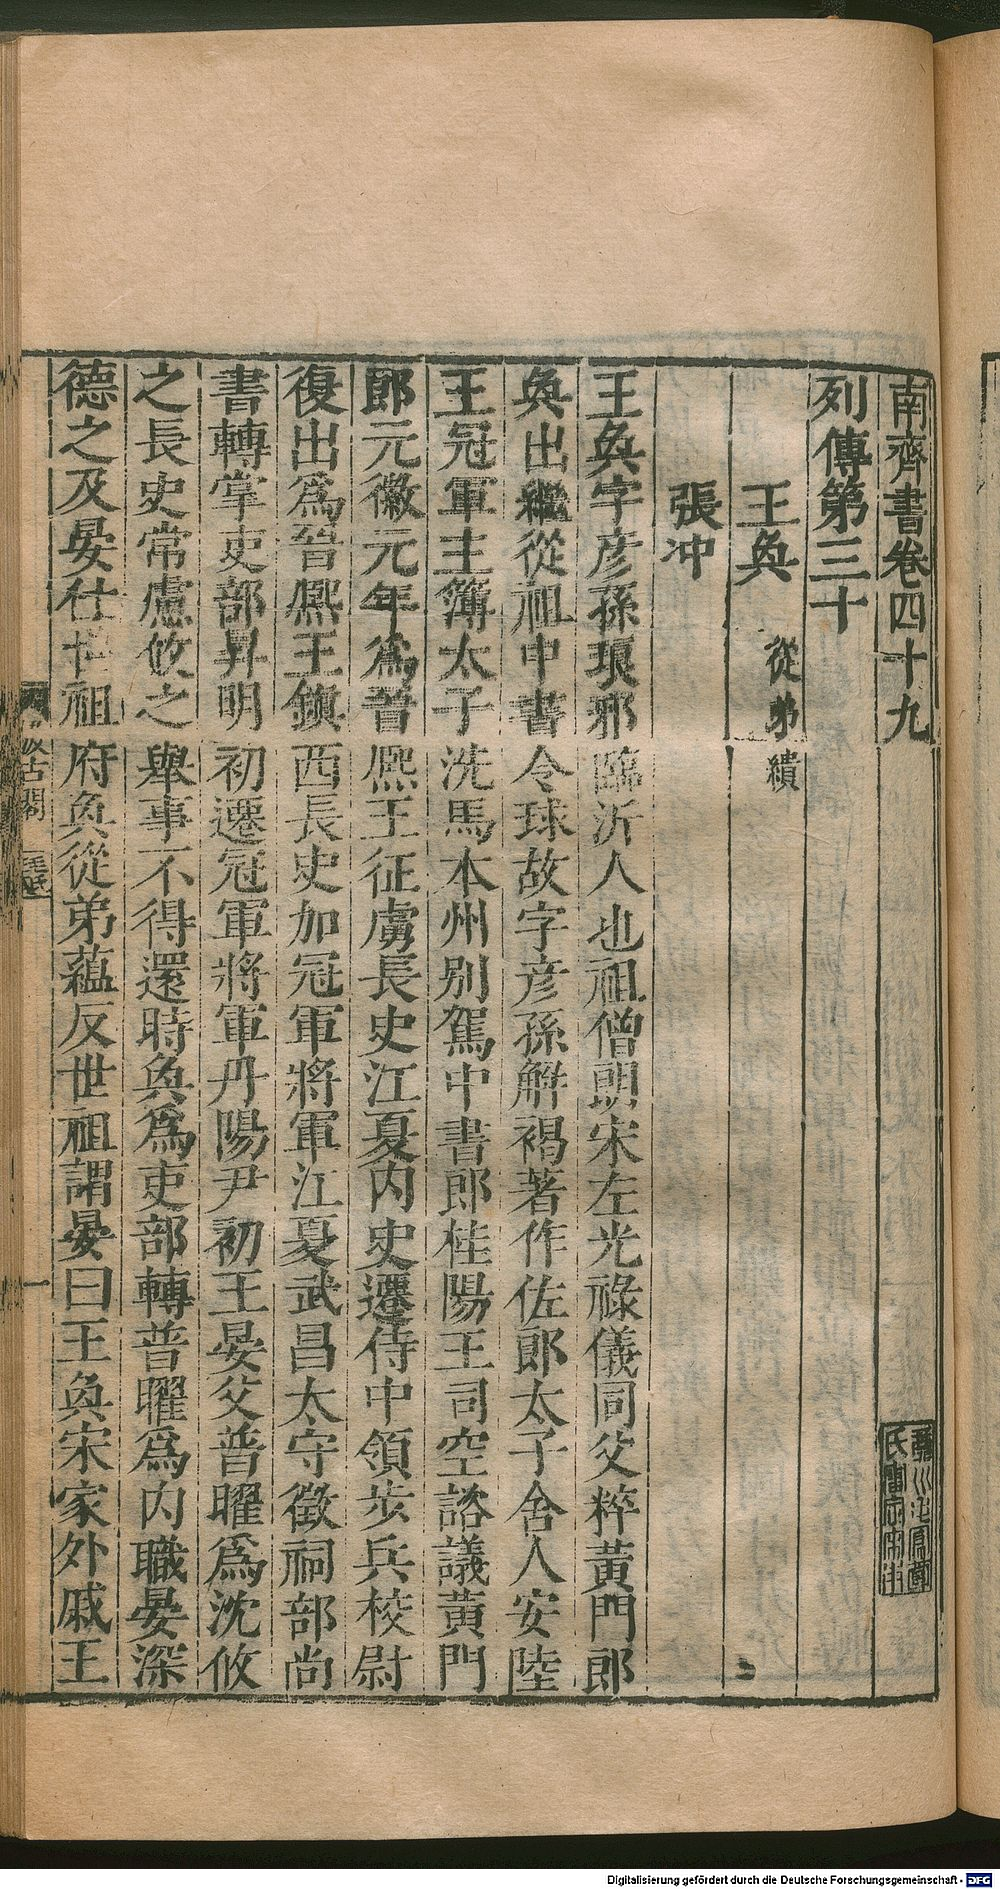 南齊書卷四十九
列傳第三十
王奐 從弟繢
張冲
王奐字彦孫琅邪臨沂人也祖僧朗宋左光祿儀同父粹黃門郎
奐出繼從祖中書令球故字彦孫解褐著作佐郎太子舍人安陸
王冠軍主簿太子洗馬本州別駕中書郎桂陽王司空諮議黃門
郎元徽元年爲晉熈王征虜長史江夏内史遷侍中領步兵校尉
復出爲晉熈王鎭西長史加冠軍將軍江夏武昌太守徵祠部尚
書轉掌吏部昇明初遷冠軍將軍丹陽尹初王晏父普曜爲沈攸
之長史常慮攸之舉事不得還時奐爲吏部轉普曜爲内職晏深
德之及晏仕世祖府奐從弟蘊反世祖謂晏曰王奐宋家外戚王
汲古閣
一
Digitalisierung gefördert durch die Deutsche Forschungsgemeinschaft - DFG